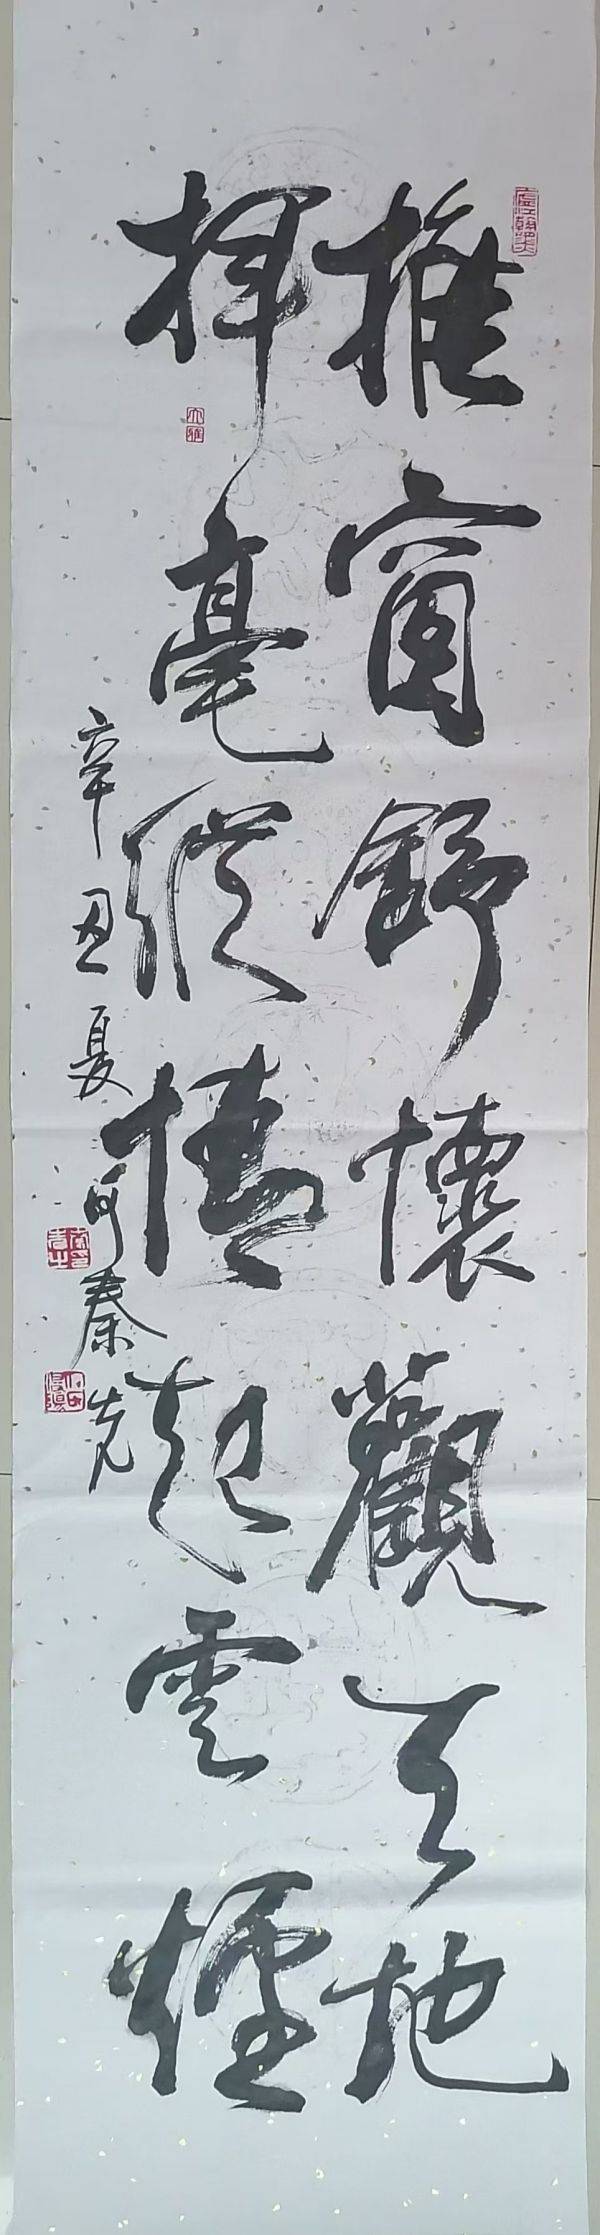 推窗舒懷觀天地
揮毫縱情起雲煙
辛丑夏何秦先